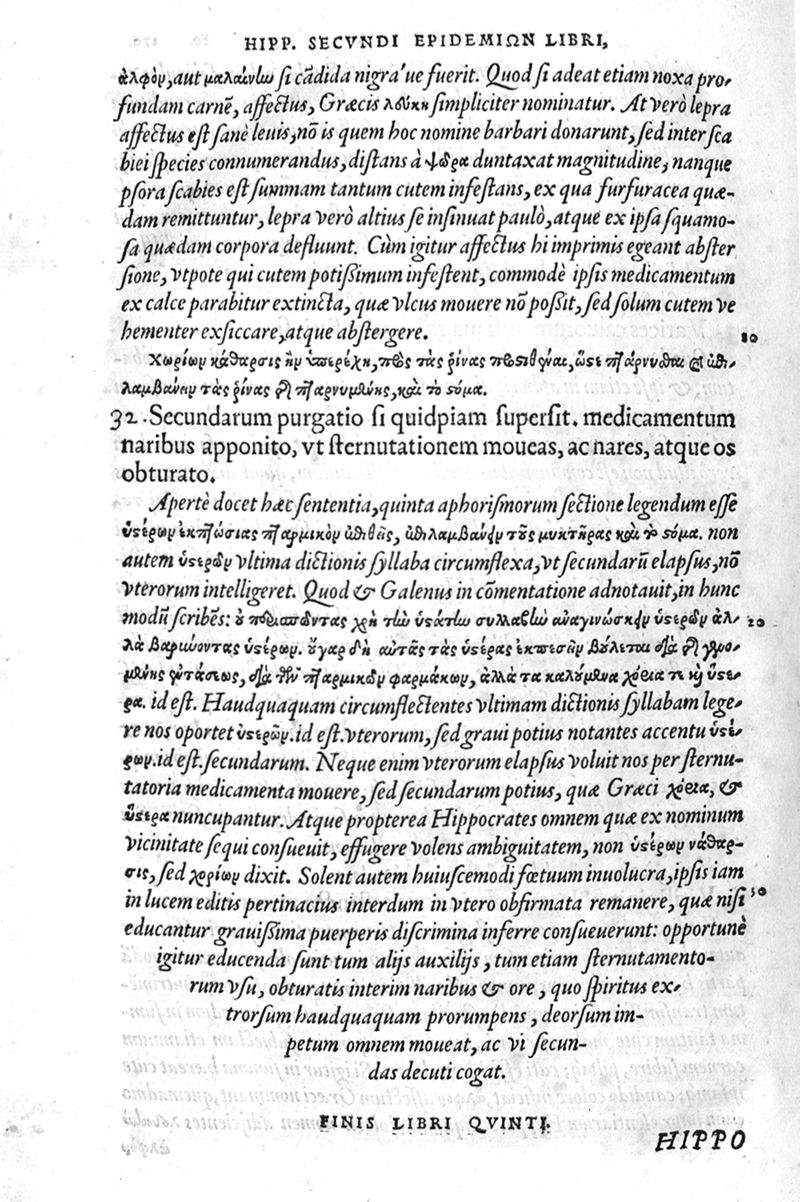 HIPP. SECVNDI EPIDEMIΩN LIBRI,
ἀλφὸν, aut μελαίνῳ si cãdida nigra've fuerit. Quod si adeat etiam noxa pro-
fundam carnẽ, affectus, Græcis λεύκη simpliciter nominatur. At verò lepra
affectus est sanè leuis, nõ is quem hoc nomine barbari donarunt, sed inter sca
biei species connumerandus, distans à ψώρα duntaxat magnitudine, nanque
psora scabies est summam tantum cutem infestans, ex qua furfuracea quæ-
dam remittuntur, lepra verò altius se insinuat paulò, atque ex ipsa squamo-
sa quædam corpora defluunt. Cùm igitur affectus hi imprimis egeant abster
sione, vtpote qui cutem potißimum infestent, commodè ipsis medicamentum
ex calce parabitur extincta, quæ vlcus mouere nõ poßit, sed solum cutem ve
hementer exsiccare, atque abstergere.
10
Χωρίων κάθαρσις ἢν ὑπερέχῃ, πρὸς τὰς ῥῖνας προστιθέναι, ὥστε πτάρνυσθαι καὶ ἐπι-
λαμβάνειν τὰς ῥῖνας τῆς πταρνυμένης, καὶ τὸ στόμα.
32. Secundarum purgatio si quidpiam supersit. medicamentum
naribus apponito, vt sternutationem moueas, ac nares, atque os
obturato.
Apertè docet hæc sententia, quinta aphorismorum sectione legendum esse
ὑστέρων ἐκπτώσιας πταρμικὸν ἐπιθεὶς, ἐπιλαμβάνειν τοὺς μυκτῆρας καὶ τὸ στόμα. non
autem ὑστερῶν vltima dictionis syllaba circumflexa, vt secundarũ elapsus, nõ
vterorum intelligeret. Quod & Galenus in cõmentatione adnotauit, in hunc
modũ scribẽs: οὐ περισπῶντας χρὴ τὴν ὑστάτην συλλαβὴν ἀναγινώσκειν ὑστερῶν ἀλ-
20
λὰ βαρύνοντας ὑστέρων. οὐ γὰρ δὴ αὐτὰς τὰς ὑστέρας ἐκπεσεῖν βούλεται διὰ τῆς γινο-
μένης ἐντάσεως, διὰ τῶν πταρμικῶν φαρμάκων, ἀλλὰ τὰ καλούμενα χόρια τε καὶ ὕστε-
ρα. id est. Haudquaquam circumflectentes vltimam dictionis syllabam lege-
re nos oportet ὑστερῶν. id est. vterorum, sed graui potius notantes accentu ὑστέ-
ρων. id est. secundarum. Neque enim vterorum elapsus voluit nos per sternu-
tatoria medicamenta mouere, sed secundarum potius, quæ Græci χόρια, &
ὕστερα nuncupantur. Atque propterea Hippocrates omnem quæ ex nominum
vicinitate sequi consueuit, effugere volens ambiguitatem, non ὑστέρων κάθαρ-
σις, sed χορίων dixit. Solent autem huiuscemodi fœtuum inuolucra, ipsis iam
in lucem editis pertinacius interdum in vtero obfirmata remanere, quæ nisi
30
educantur grauißima puerperis discrimina inferre consueuerunt: opportunè
igitur educenda sunt tum alijs auxilijs, tum etiam sternutamento-
rum vsu, obturatis interim naribus & ore, quo spiritus ex-
trorsum haudquaquam prorumpens, deorsum im-
petum omnem moueat, ac vi secun-
das decuti cogat.
FINIS LIBRI QVINTI.
HIPPO